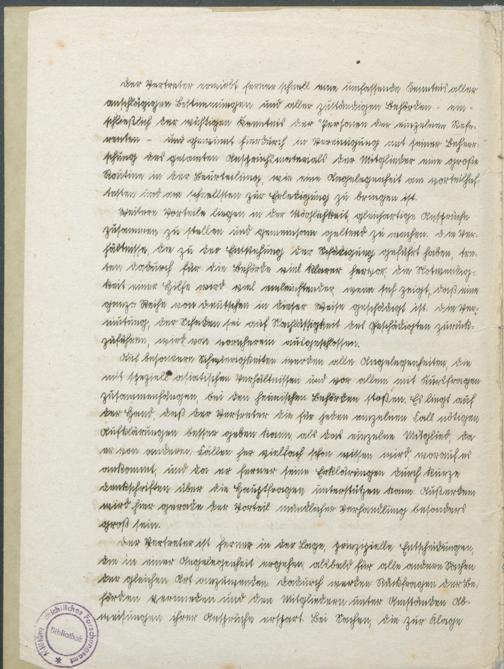 Der Vertreter erwirbt ferner schnell eine umfassende Kenntnis aller
einschlägigen Bestimmungen und aller zuständigen Behörden - ein-
schließlich der wichtigen Kenntnis der Personen der einzelnen Refe-
renten - und gewinnt hierdurch in Vereinigung mit seiner Beherr-
schung des gesamten Anspruchsmaterials der Mitglieder eine große
Routine in der Beurteilung, wie eine Angelegenheit am vorteilhaf-
testen und am schnellsten zur Erledigung zu bringen ist.
Weitere Vorteile liegen in der Möglichkeit, gleichartige Ansprüche
zusammen zu stellen und gemeinsam geltend zu machen. Die Ver-
hältnisse, die zu der Entstehung der Schädigung geführt haben, tre-
ten dadurch für die Behörde viel klarer hervor, die Notwendig-
keit einer Hilfe wird viel einleuchtender, wenn sich zeigt, daß eine
ganze Reihe von Deutschen in dieser Weise geschädigt ist. Die Ver-
mutung, der Schaden sei auf Nachlässigkeit des Geschädigten zurück-
zuführen, wird von vornherein ausgeschlossen.
Auf besondere Schwierigkeiten werden alle Angelegenheiten, die
mit speziell asiatischen Verhältnissen und vor allem mit Kursfragen
zusammenhängen, bei den heimischen Behörden stoßen. Es liegt auf
der Hand, daß der Vertreter die für jeden einzelnen Fall nötigen
Aufklärungen besser geben kann als das einzelne Mitglied, da
er von anderen Fällen her vielfach schon wissen wird, worauf es
ankommt, und da er ferner seine Erklärungen durch kurze
Denkschriften über die Hauptfragen unterstützen kann. Außerdem
wird hier gerade der Vorteil mündlicher Verhandlung besonders
groß sein.
Der Vertreter ist ferner in der Lage, prinzipielle Entscheidungen,
die in einer Angelegenheit ergehen, alsbald für alle anderen Sachen
der gleichen Art anzuwenden. Dadurch werden Rückfragen der Be-
hörden vermieden und den Mitgliedern unter Umständen Ab-
weisungen ihrer Ansprüche erspart. Bei Sachen, die zur Klage
Bibliothek